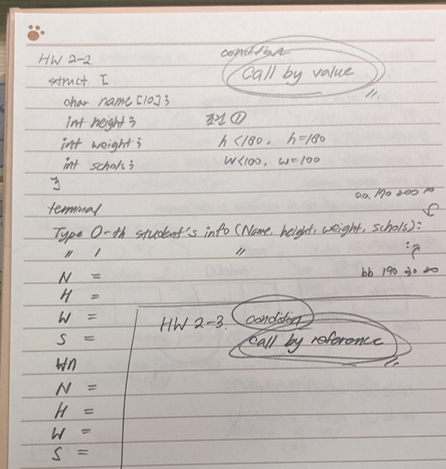 HW 2-2
condition
Call by value
struct [
char name [10];
int height;
조건 ①
int weight;
h < 180, h=180
int schols;
w<100, w=100
}
aa 170 200 10
terminal
Type 0-th student's info (Name, height, weight, schols):
" 1 " :
bb 190 30 20
N =
H =
W =
S =
\n
N =
H =
W =
S =
HW 2-3. condition
call by reference